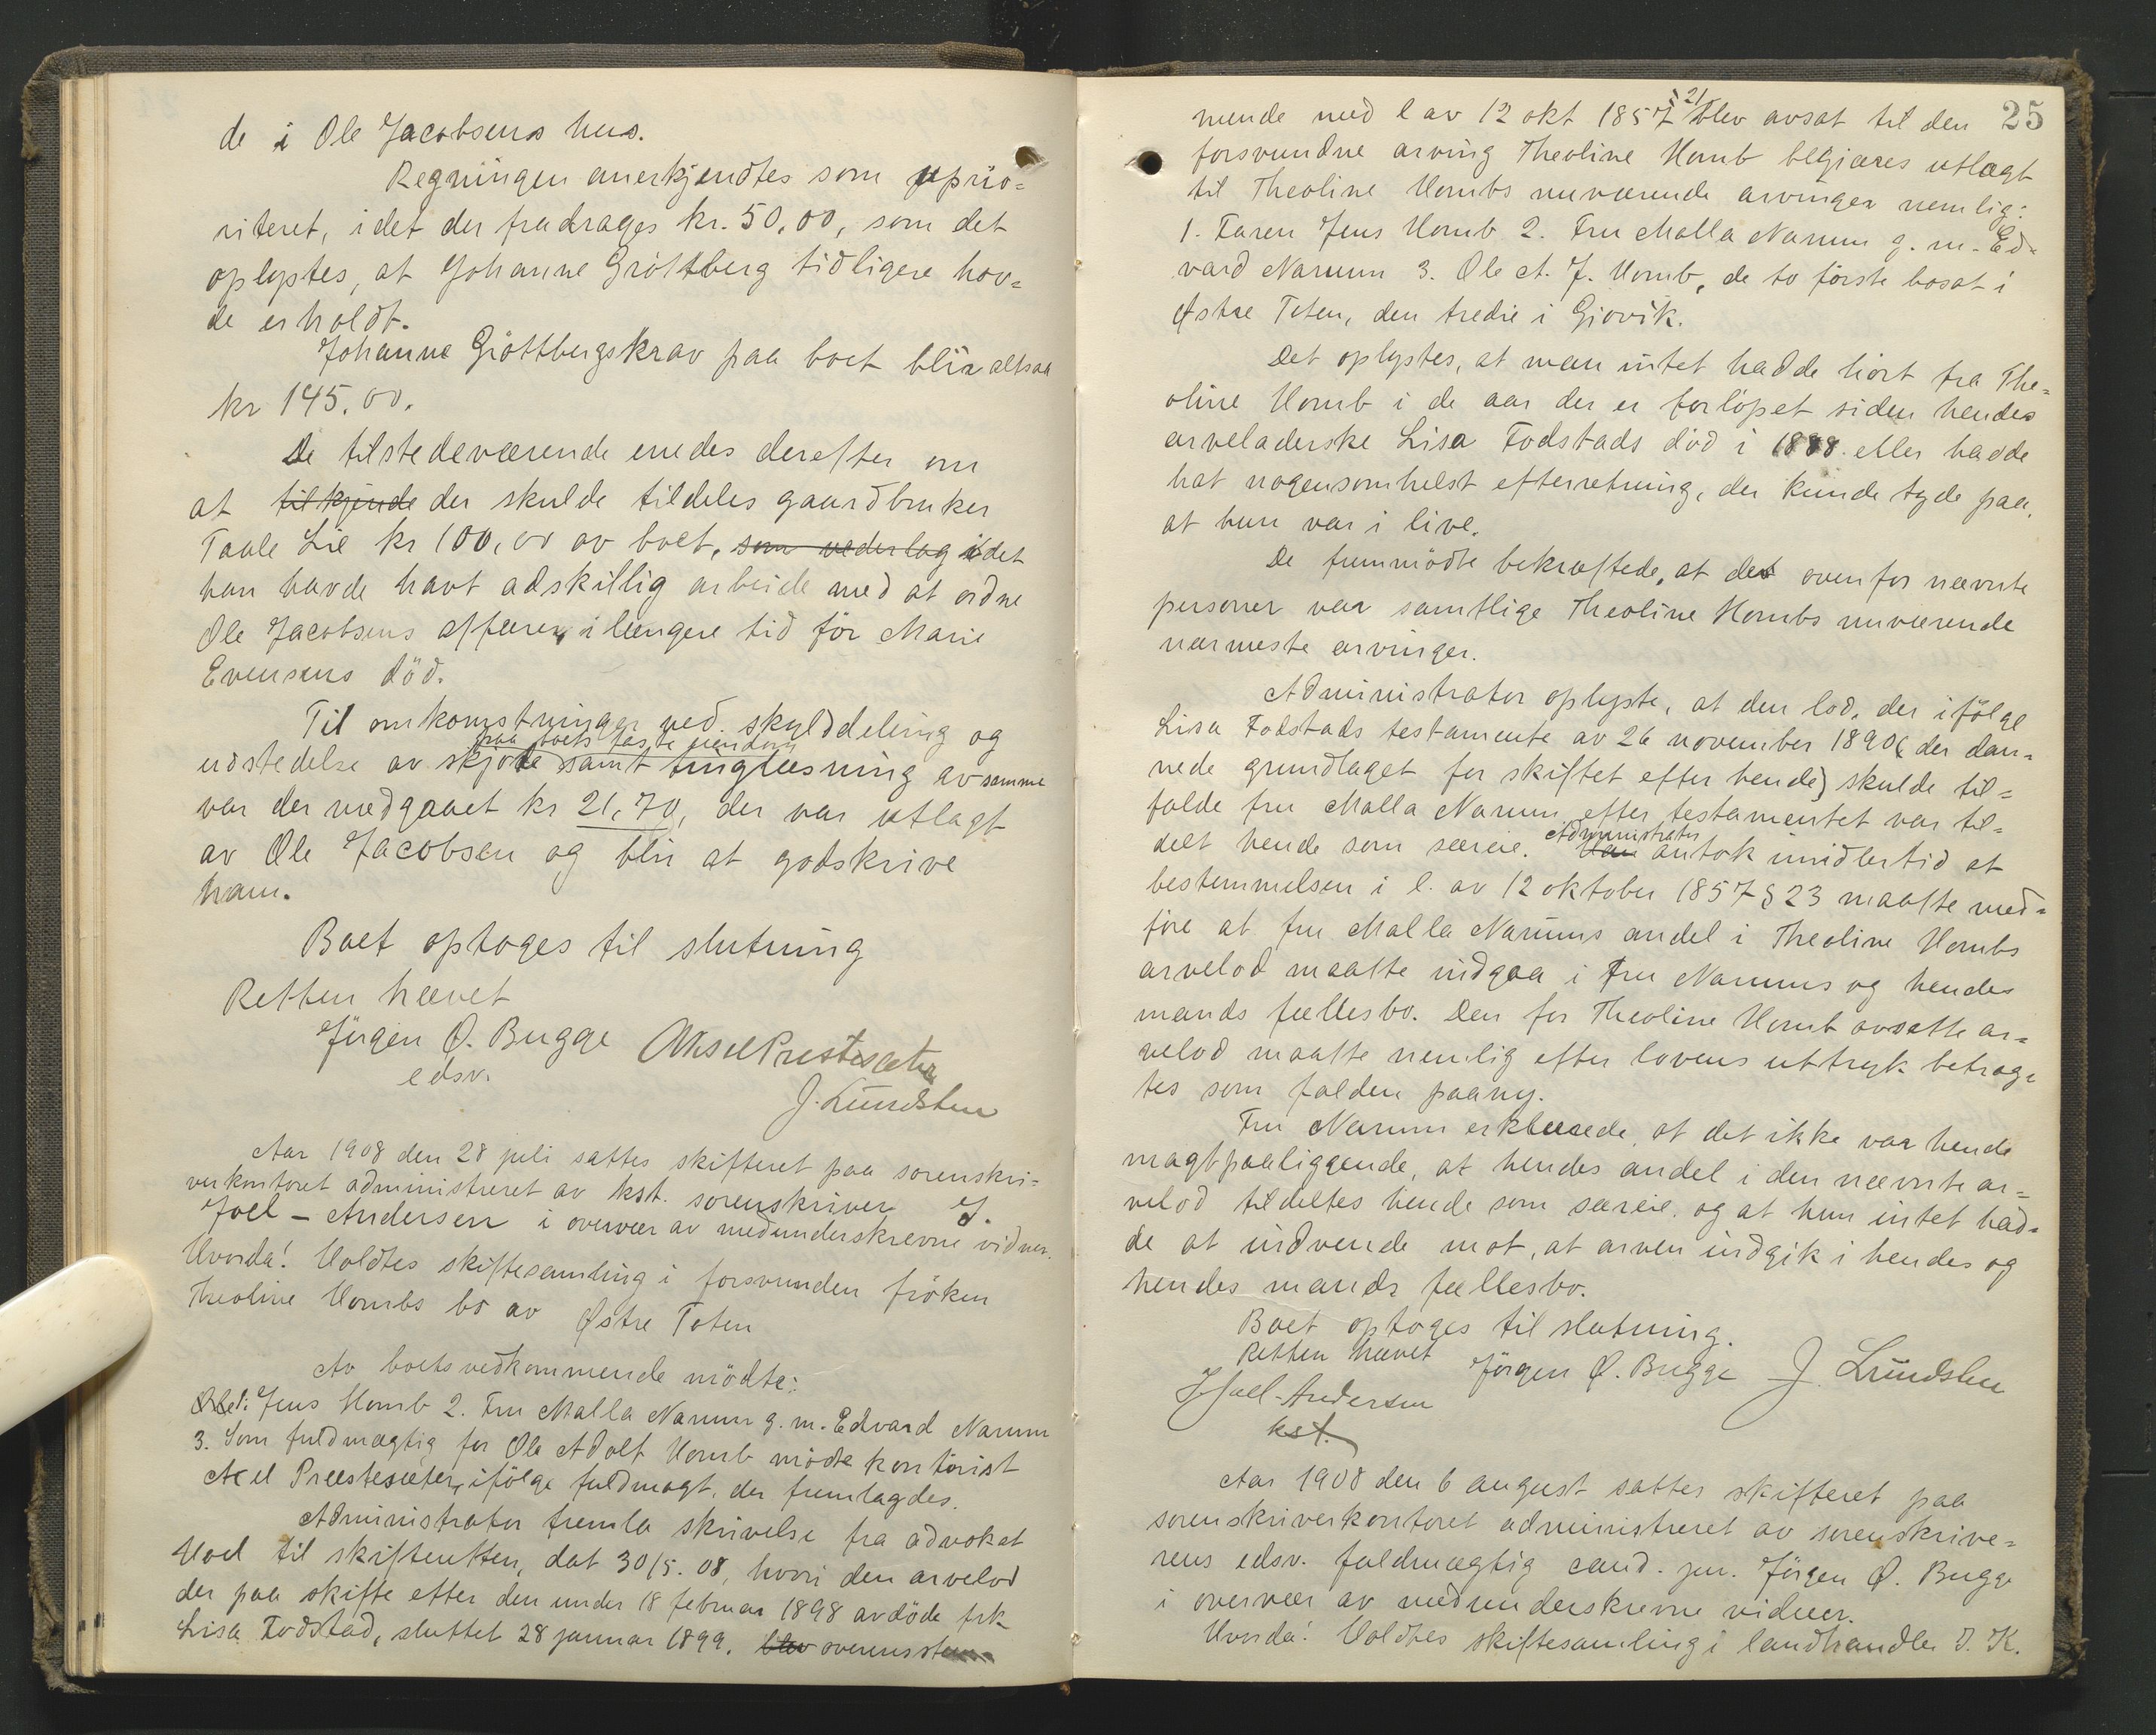 de i Ole Jacobsens hus.
Regningen anerkjendtes som uprio=
riteret, idet der fradrages kr. 50,00, som det
oplystes, at Johanne Gröttberg tidligere hav=
de erholdt.
Johanne Gröttbergs krav paa boet blir altsaa
kr 145,00.
De tilstedeværende enedes derefter om
at tilkjende der skulde tildeles gaardbruker
Taale Lie kr 100,00 av boet, som vederlag idet
han havde havt adskillig arbeide med at ordne
Ole Jacobsens affærer i længere tid för Marie
Evensens död.
Til omkomstninger ved skylddeling og
paa boets faste eiendom
udstedelse av skjöte samt tinglæsning av samme
var der medgaaet kr 21,70, der var utlagt
av Ole Jacobsen og blir at godskrive
ham.
Boet optoges til slutning
Retten hævet
Jörgen Ø. Bugge Aksel Præstesæter
edsv.
J. Lundsten
Aar 1908 den 28 juli sattes skifteret paa sorenskri=
verkontoret administreret av kst. sorenskriver J.
Joel - Andersen i overvær av medunderskrevne vidner.
Hvorda! Holdtes skiftesamling i forsvunden fröken
Theoline Hombs bo av Østre Toten
Av boets vedkommende mödte:
1. Jens Homb 2. Fru Malla Narum g. m. Edvard Narum
3. Som fuldmægtig for Ole Adolf Homb mödte kontorist
Axel Præstesæter, ifölge fuldmagt, der fremlagdes.
Administrator fremla skrivelse fra advokat
Hoel til skifteretten, dat 30/5. 08, hvori den arvelod
der paa skifte efter den under 18 februar 1898 avdöde frk
Lisa Fodstad, sluttet 28 januar 1899, blev overensstem
25
21
mende med l av 12 okt 1857 § blev avsat til den
forsvundne arving Theoline Homb begjæres utlagt
til Theoline Hombs nuværende arvinger nemlig:
1. Faren Jens Homb 2. Fru Malla Narum g. m. Ed=
vard Narum 3. Ole A. J. Homb, de to förste bosat i
Østre Toten, den tredie i Gjövik.
Det oplystes, at man intet hadde hört fra The=
oline Homb i de aar der er forlöpet siden hendes
arveladerske Lisa Fodstads död i 1898 eller hadde
hat nogensomhelst efterretning, der kunde tyde paa,
at hun var i live.
De fremmödte bekræftede, at de ovenfor nævnte
personer var samtlige Theoline Hombs nuværende
nærmeste arvinger.
Administrator oplyste, at den lod, der ifölge
Lisa Fodstads testamente av 26 november 1890 (der dan=
nede grundlaget for skiftet efter hende) skulde til=
falde fru Malla Narum efter testamentet var til=
Administrator
delt hende som særeie. Han antok imidlertid at
bestemmelsen i l. av 12 oktober 1857 § 23 maatte med=
före at fru Malla Narums andel i Theoline Hombs
arvelod maatte indgaa i fru Narums og hendes
mands fællesbo. Den for Theoline Homb avsatte ar=
velod maatte nemlig efter lovens uttryk betrag=
tes som falden paany.
Fru Narum erklærede, at det ikke var hende
magtpaaliggende, at hendes andel i den nævnte ar=
velod tildeltes hende som særeie, og at hun intet had=
de at indvende mot, at arven indgik i hendes og
hendes mands fællesbo.
Boet optoges til slutning.
Retten hævet
Jörgen Ø. Bugge J. Lundsten
J Joel-Andersen
kst.
Aar 1908 den 6 august sattes skifteret paa
sorenskriverkontoret administreret av sorenskrive=
rens edsv. fuldmægtig cand. jur. Jörgen Ø. Bugge
i overvær av medunderskrevne vidner.
Hvorda! Holdtes skiftesamling i landhandler J. K.